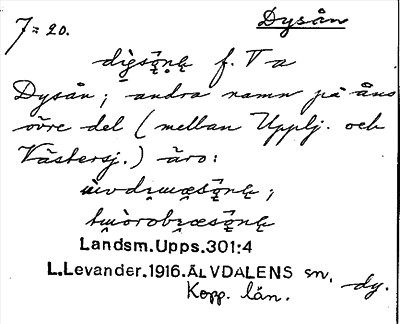 Dysån
7 = 20.
f. T-a
Dysån; andra namn på åns
övre del (mellan Upplj. och
Västersj.) äro:
Landsm.Upps.301:4
L.Levander.1916.ÄLVDALENS sn.
Kopp. län.
dy.